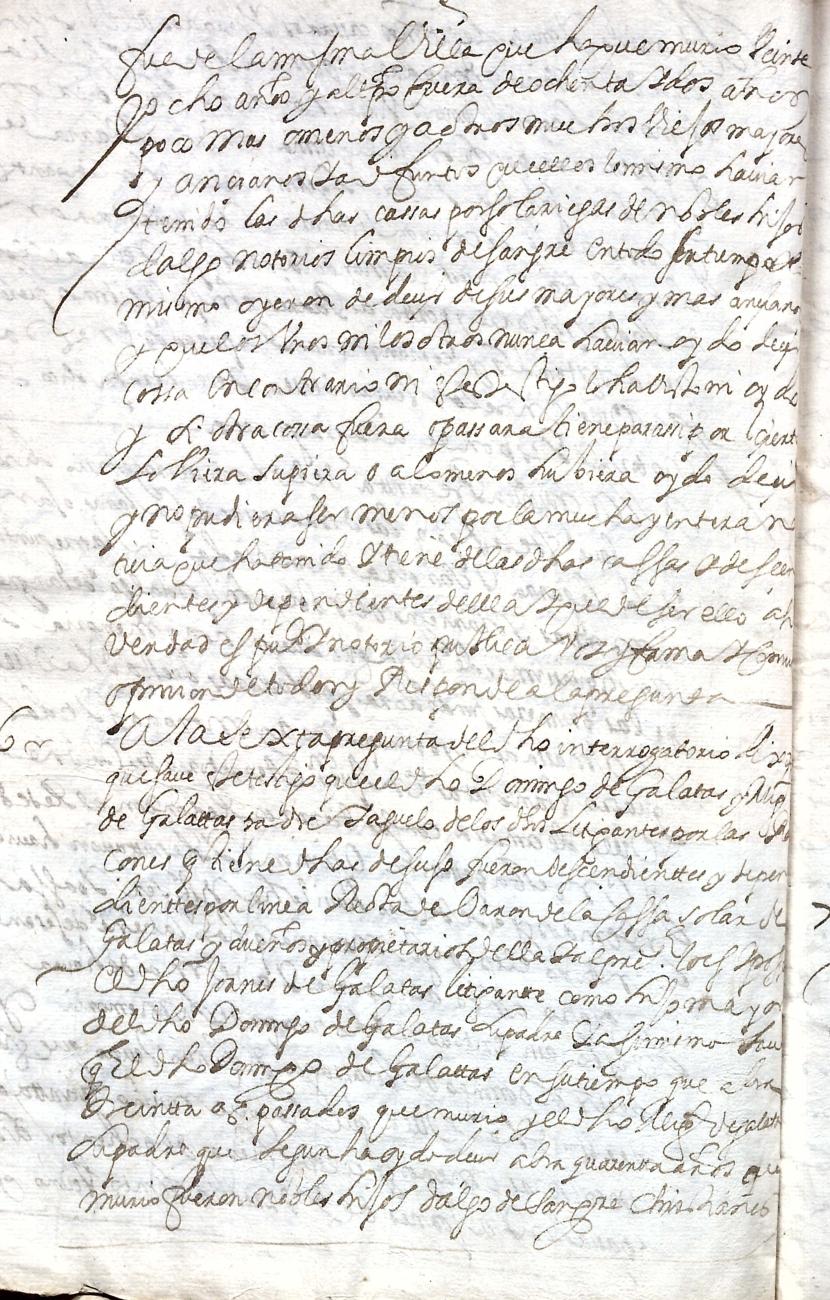 fue de la misma Villa que ha que murio Veinte
y ocho años y al tpo fuera de ochenta y dos años
poco mas o menos y a otros muchos Viejos mayores
y ancianos ya difuntos que ellos lo mismo havian
tenido las dhas cassas por solariegas de nobles hijos
dalgo notorios limpios de sangre en todo su tiempo
mismo oyeron de decir de sus mayores y mas ancianos
y que los Unos ni los otros nunca havian oydo decir
cossa en contrario ni este testigo lo ha visto ni oydo
y si otra cossa fuera o passara tiene para si por cierto
lo Viera supiera o a lo menos hubiera oydo decir
y no pudiera ser menos por la mucha y entera no
ticia que ha tenido y tiene de las dhas cassas y descen
dientes y dependientes della y que de ser ello
Verdad es pu notorio publica Voz y fama y comun
opinion de todos y Responde a la pregunta
6 A la sexta pregunta del dho interrogatorio dixo
que save este testigo que el dho Domingo de Galatas y
de Galattas padre y aguelo de los dhos Litigantes por las
cones q tiene dhas de suso fueron descendienttes y depen
dienttes por linea Recta de Varon de la Cassa solar de
Galatas y dueños y propietarios della y al pre
el dho Joanes de Galatas litigante como hijo mayor
del dho Domingo de Galatas su padre y asimismo save
q El dho Domingo de Galattas en su tiempo que abra
treintta as passados que murio y el dho de galatas
su padre que segun ha oydo decir abra quarentta años que
murio fueron nobles hijos dalgo de sangre christianos